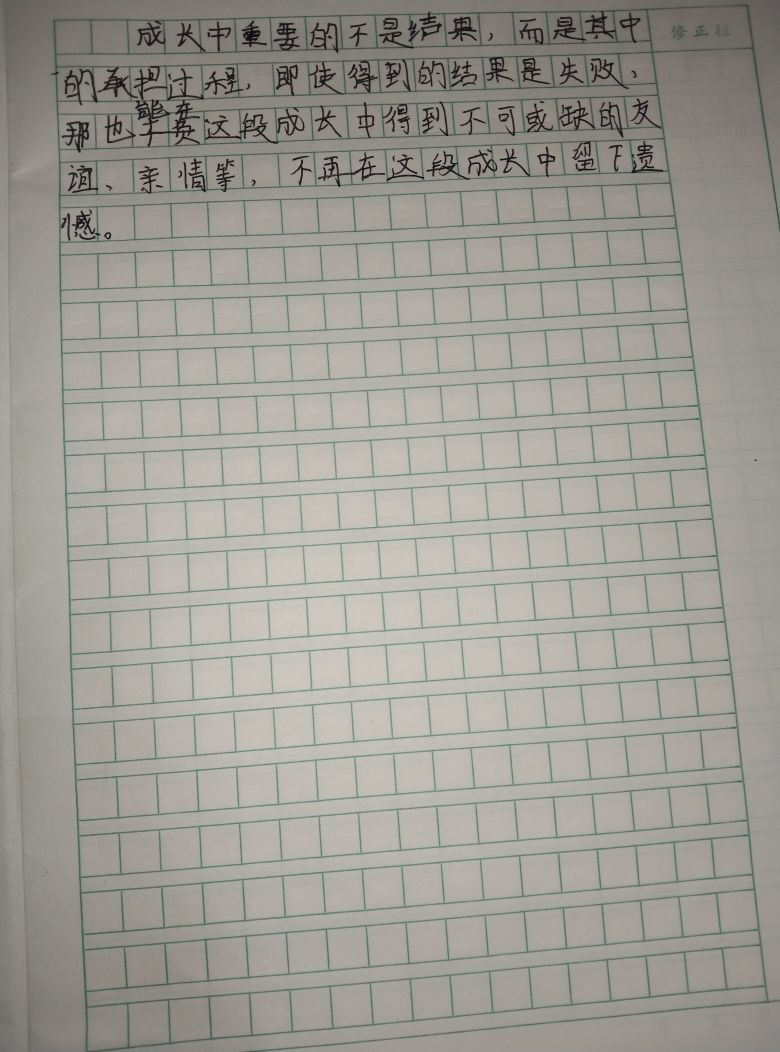 成长中重要的不是结果，而是其中
修正栏
的承担过程，即使得到的结果是失败，
那也能在这段成长中得到不可或缺的友
谊、亲情等，不再在这段成长中留下遗
憾。